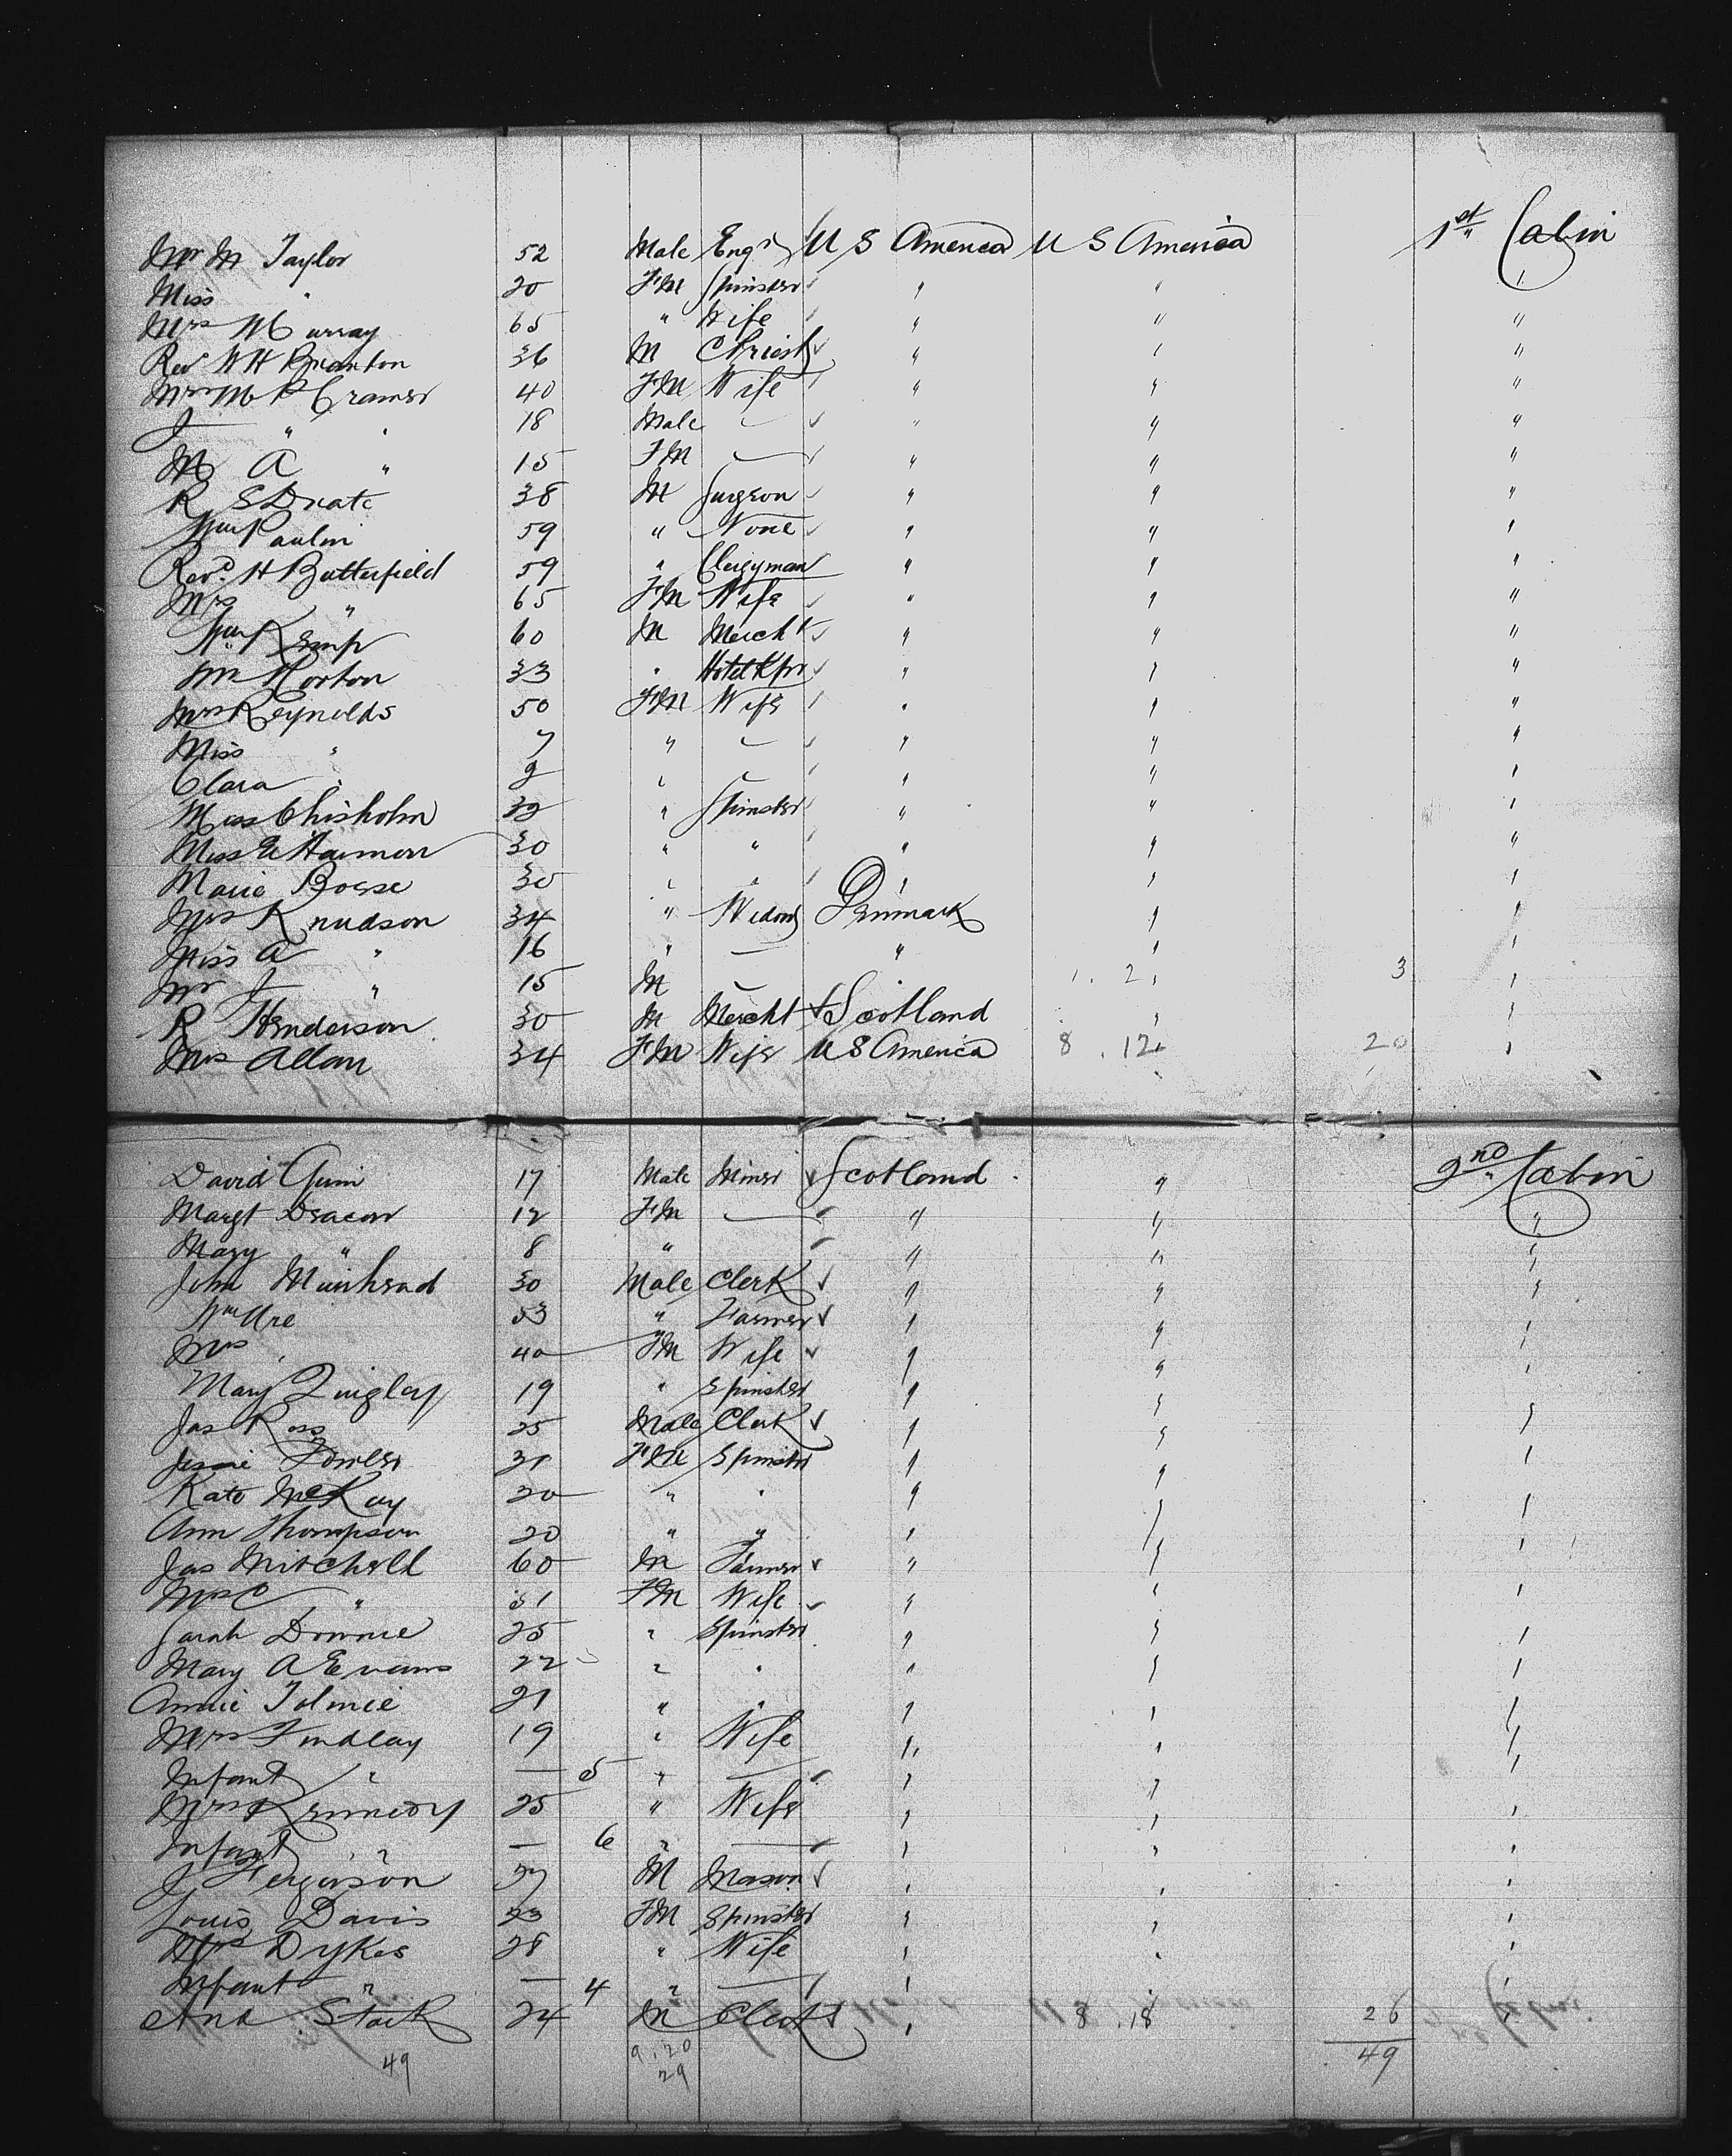 Mr M Taylor 52 Male Engr U S America U S America 1st Cabin
Miss " 20 FM Spinster " " "
Mrs Murray 65 " Wife " " "
Rev W H Branton 36 M Priest " " "
Mrs M P Cramer 40 FM Wife " " "
J " " 18 Male — " " "
M A " 15 FM — " " "
R S 38 M Surgeon " " "
Wm Paulin 59 " None " " "
Revd. H Butterfield 59 " Clergyman " " "
Mrs " 65 FM Wife " " "
Wm Kemp 60 M Mercht " " "
Mr Horton 33 " Hotel Kpr " " "
Mrs Reynolds 50 FM Wife " " "
Miss " 7 " — " " "
Clara " 9 " — " " "
Miss Chisholm 32 " Spinster " " "
Miss E Harmon 30 " " " " "
Marie Bosse 30 " " " " "
Mrs Knudson 34 " Widow Denmark " "
Miss A " 16 " — " " "
Mr J " 15 M — 1 . 2 3 "
R Henderson 30 M Mercht Scotland " "
Mrs Allan 34 FM Wife U S America 8 . 12 20 "
David Gunn 17 Male Miner Scotland " 2nd Cabin
Margt Deacon 12 FM — " " "
Mary " 8 " " " "
John Muirhead 30 Male Clerk " " "
Wm Ure 53 " Farmer " " "
Mrs " 40 FM Wife " " "
Mary Quigley 19 " Spinster " " "
Jas Ross 25 Male Clerk " " "
Jessie Fowler 31 FM Spinster " " "
Kate McKay 20 " " " " "
Ann Thompson 20 " " " " "
Jas Mitchell 60 M Farmer " " "
Mrs C " 51 FM Wife " " "
Sarah Downie 25 " Spinster " " "
Mary A Evans 22 " " " " "
Annie Tolmie 21 " " " " "
Mrs Findlay 19 " Wife " " "
Infant " — 5 " — " " "
Mrs Kennedy 25 " Wife " " "
Infant " — 6 " — " " "
J Ferguson 37 M Mason " " "
Louis Davis 23 FM Spinster " " "
Mrs Dykes 28 " Wife " " "
Infant " — 4 " — " " "
And Stark 24 M Clerk " 8 . 18 26 "
49 9 . 20 49
29